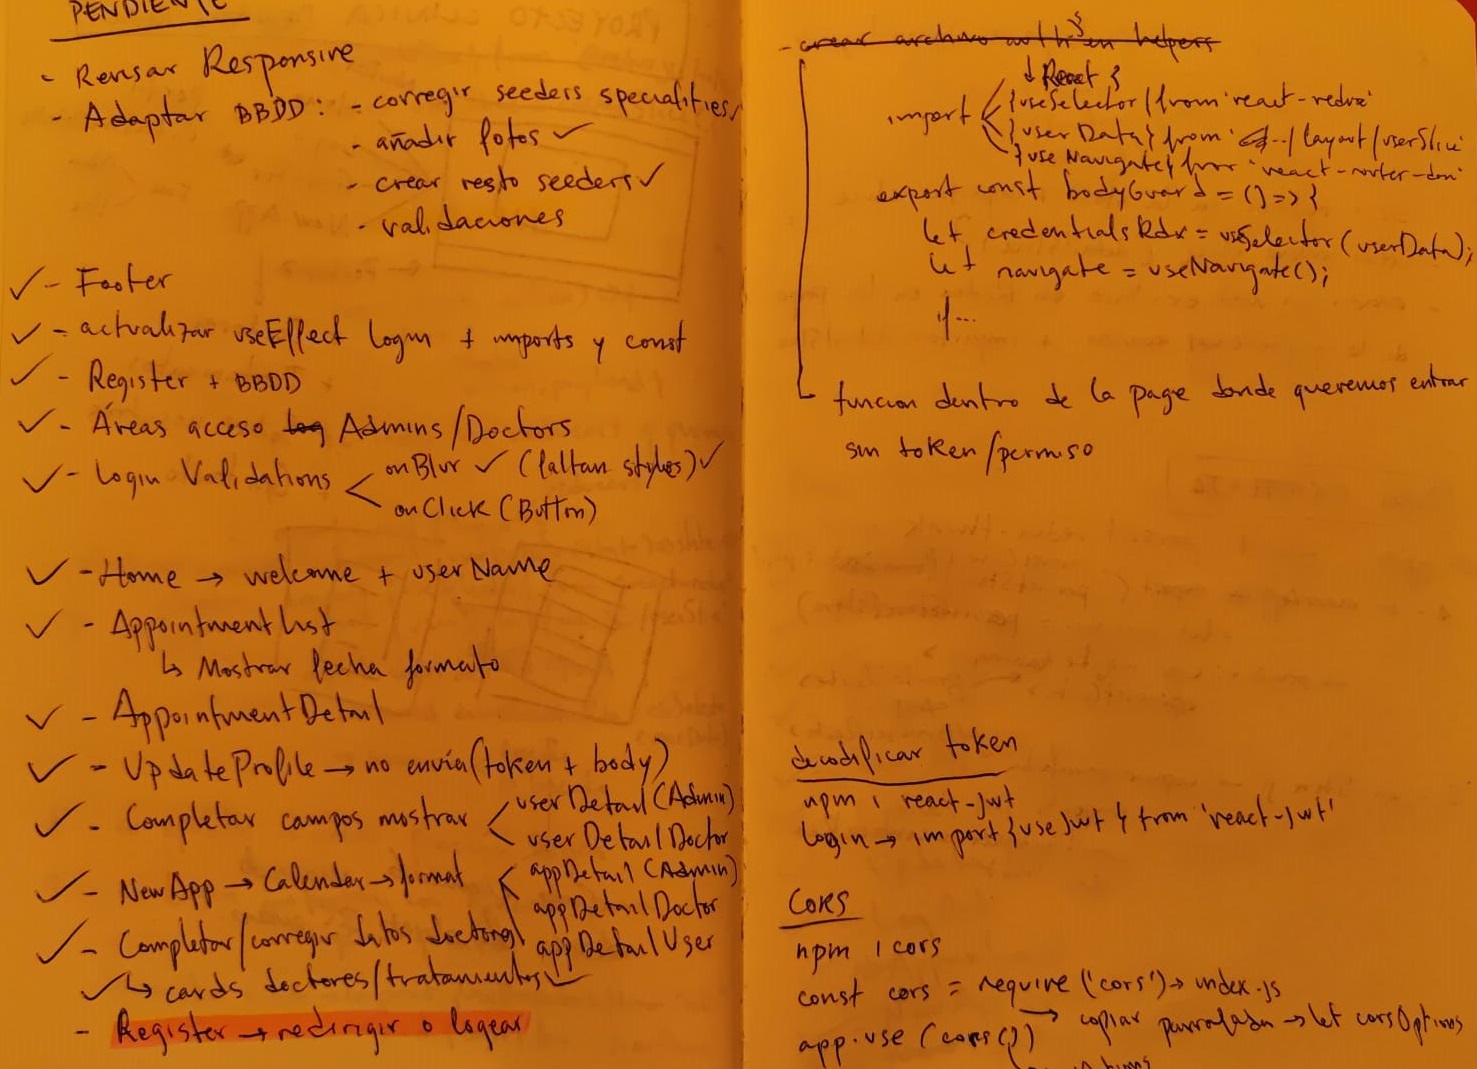 PENDIENTE
- Revisar Responsive
- Adaptar BBDD: - corregir seeders specialities ✓
- añadir fotos ✓
- crear resto seeders ✓
- validaciones
✓ - Footer
✓ - actualizar useEffect Login + imports y const
✓ - Register + BBDD
✓ - Áreas acceso log Admins/Doctors
✓ - Login Validations < onBlur ✓ (faltan styles) ✓
onClick (Button)
✓ - Home → welcome + userName
✓ - Appointment List
↳ Mostrar fecha formato
✓ - AppointmentDetail
✓ - UpdateProfile → no envía (token + body)
✓ - Completar campos mostrar < userDetail (Admin)
userDetailDoctor
✓ - NewApp → Calendar → format < appDetail (Admin)
appDetailDoctor
✓ - Completar/corregir datos doctores
appDetailUser
✓ ↳ cards doctores/tratamientos ✓
- Register → redirigir o logear
- crear archivo auth en helpers
↓ React }
import < {useSelector} from 'react-redux'
{userData} from ' ../layout/userSlice'
{useNavigate} from 'react-router-dom'
export const bodyGuard = () => {
let credentialsRdx = useSelector(userData);
let navigate = useNavigate();
if...
funcion dentro de la page donde queremos entrar
sin token/permiso
decodificar token
npm i react-jwt
Login → import {useJwt} from 'react-jwt'
CORS
npm i cors
const cors = require ('cors') → index.js
app.use (cors()) → copiar → let corsOptions